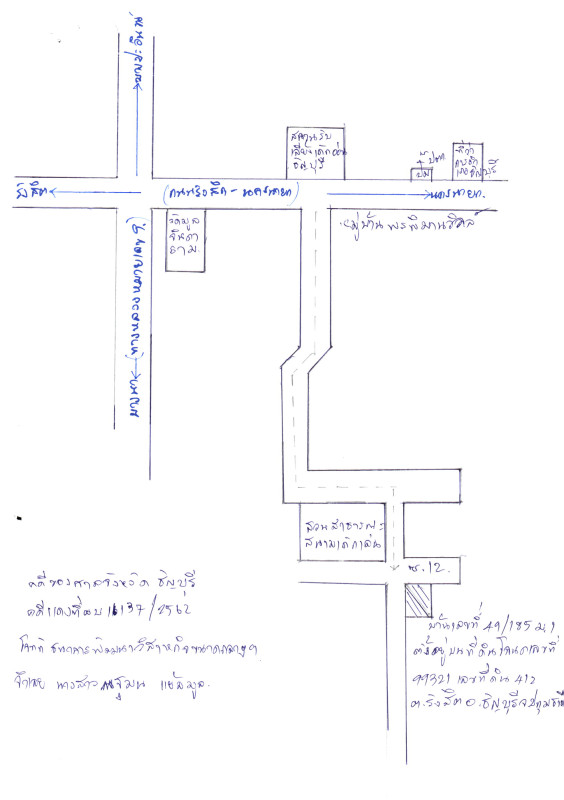 สถานรับ
เลี้ยงเด็กอ่อน
ธัญบุรี
ปตท.
ปั๊ม
ที่ว่า
การอำ
เภอธัญบุรี
รังสิต
(ถนนรังสิต - นครนายก)
นครนายก.
วัดมูล
จินดา
ราม.
หมู่บ้าน พรพิมานวิลล์
สวนสาธารณะ
สนามเด็กเล่น
ซ.12.
คดีของศาลจังหวัด ธัญบุรี
คดีแดงที่ ผบ 1137/2562
โจทก์ ธนาคารพัฒนาวิสาหกิจขนาดกลางฯ
จำเลย นางสาว
บ้านเลขที่ 49/185 ม.1
ตั้งอยู่บนที่ดินโฉนดเลขที่
99321 เลขที่ดิน 412
ต.รังสิต อ.ธัญบุรี จ.ปทุมธานี